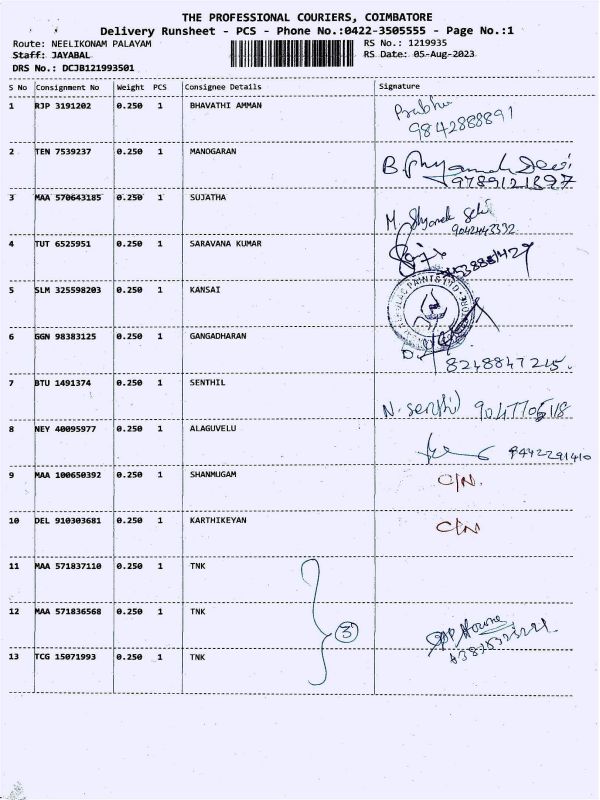 THE PROFESSIONAL COURIERS, COIMBATORE
Delivery Runsheet - PCS - Phone No.:0422-3505555 - Page No.:1
Route: NEELIKONAM PALAYAM RS No.: 1219935
Staff: JAYABAL RS Date: 05-Aug-2023
DRS No.: DCJB121993501
S No Consignment No Weight PCS Consignee Details Signature
1 RJP 3191202 0.250 1 BHAVATHI AMMAN Prabhu
9842888891
2 TEN 7539237 0.250 1 MANOGARAN
9789121897
3 MAA 570643185 0.250 1 SUJATHA
9042443332
4 TUT 6525951 0.250 1 SARAVANA KUMAR
5 SLM 325598203 0.250 1 KANSAI
6 GGN 98383125 0.250 1 GANGADHARAN
8248847215.
7 BTU 1491374 0.250 1 SENTHIL
N. Senthil
8 NEY 40095977 0.250 1 ALAGUVELU
9442291410
9 MAA 100650392 0.250 1 SHANMUGAM C/N.
10 DEL 910303681 0.250 1 KARTHIKEYAN C/N
11 MAA 571837110 0.250 1 TNK
12 MAA 571836568 0.250 1 TNK
3
13 TCG 15071993 0.250 1 TNK